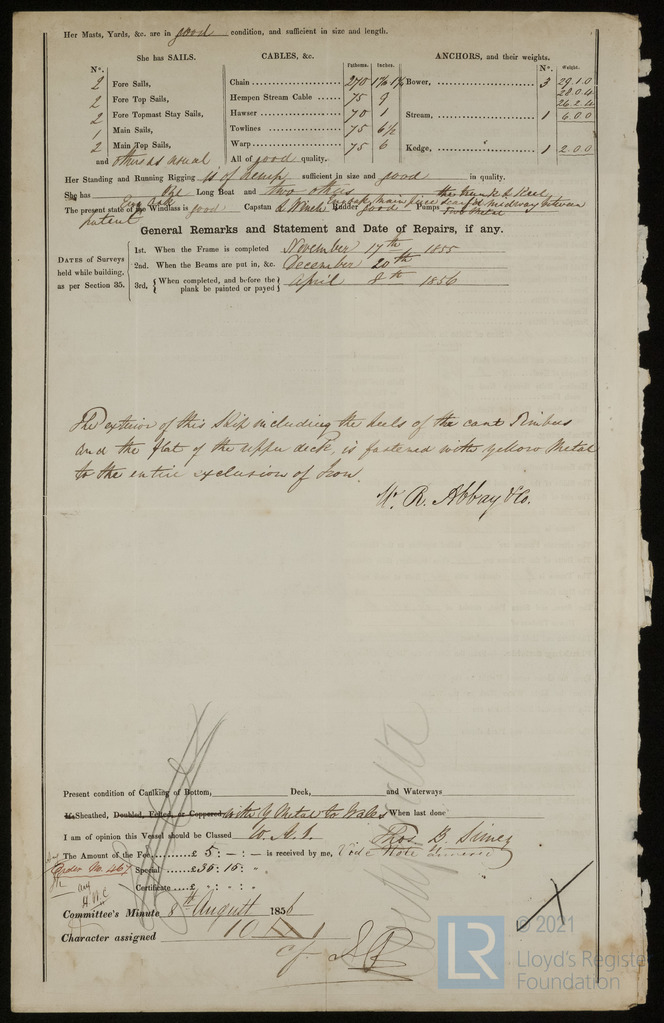 Her Masts, Yards, &c. are in good condition, and sufficient in size and length.
She has SAILS. CABLES, &c. Fathoms. Inches. ANCHORS, and their weights.
N°. N°. Weight.
2 Fore Sails, Chain 270 1 7/16 Bower, 3 29.1.0
28.0.4
2 Fore Top Sails, Hempen Stream Cable 75 9 26.2.4
2 Fore Topmast Stay Sails, Hawser 70 1 Stream, 1 6.0.0
1 Main Sails, Towlines 75 6 1/2
2 Main Top Sails, Warp 75 6 Kedge, 1 2.0.0
and others as usual All of good quality.
Her Standing and Running Rigging is of hemp sufficient in size and good in quality.
She has One Long Boat and two others
The present state of the Windlass is good Capstan & Winch Rudder good Pumps
patent
General Remarks and Statement and Date of Repairs, if any.
DATES of Surveys held while building, as per Section 35.
1st. When the Frame is completed November 17th 1855
2nd. When the Beams are put in, &c. December 20th
3rd. {When completed, and before the plank be painted or payed} April 8th 1856
The exterior of this Ship including the heels of the cant Timbers
and the flat of the upper deck, is fastened with yellow Metal
to the entire exclusion of Iron.
W. R. Abbay & Co.
Present condition of Caulking of Bottom, Deck, and Waterways
Is Sheathed, Doubled, Felted, or Coppered with Y Metal to Wales When last done
I am of opinion this Vessel should be Classed
The Amount of the Fee £ 5 : - : - is received by me,
Order No. 467 Special £36.15 : "
Certificate £ " : " : "
Committee's Minute 8th August 1856
Character assigned 10 A 1
LR © 2021
Lloyd's Register
Foundation